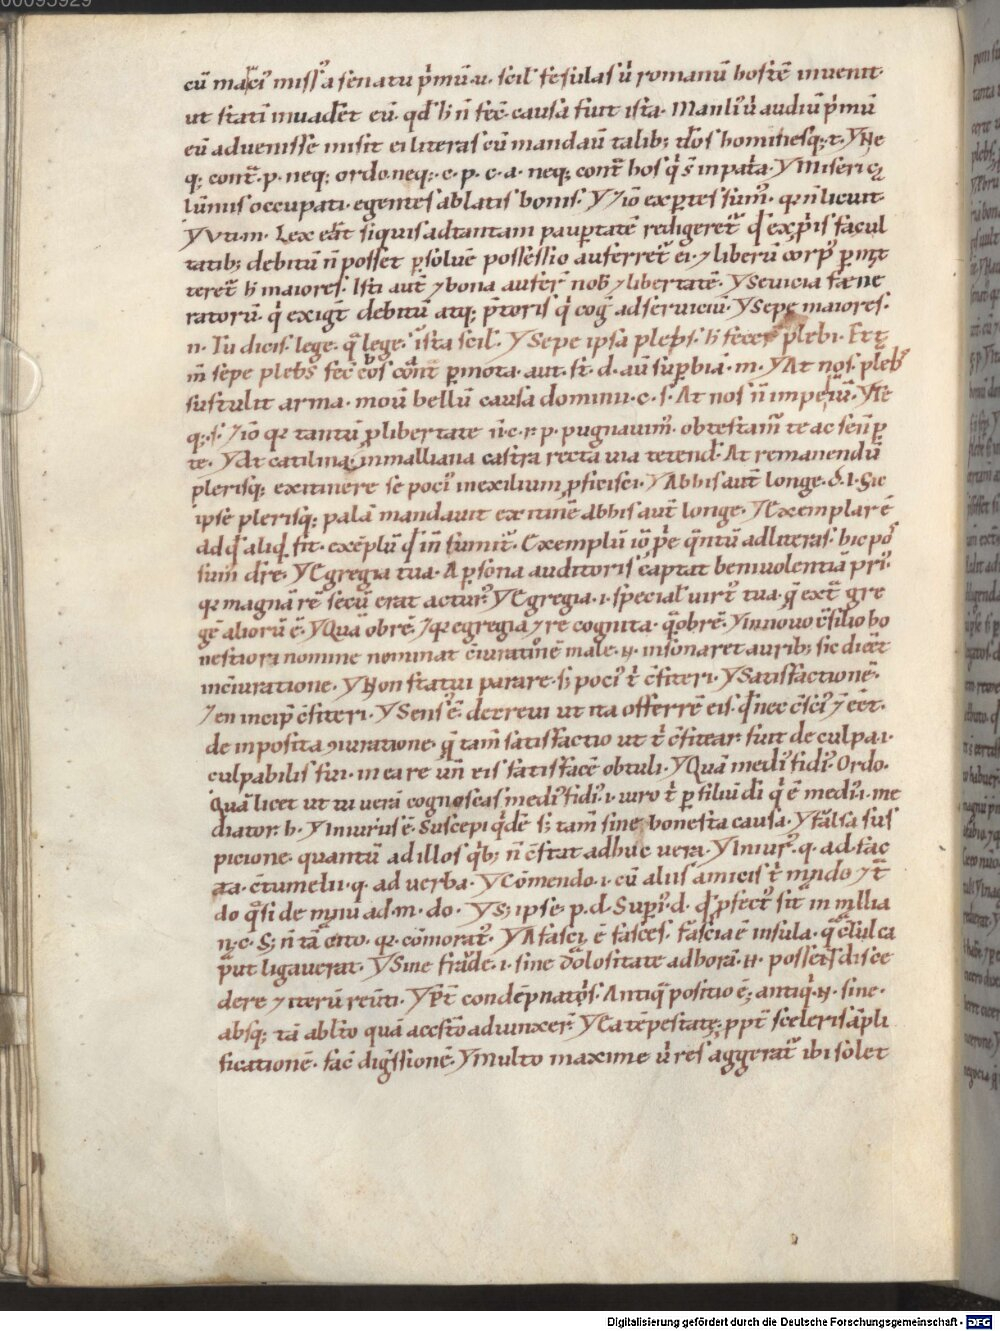 cū marci᷒ miss᷒ a senatu p̓mū .u. scil fesulas ū romanū hostē inuenit.
ut statī inuadet eū. qd̓ h n̄ fec̄. causa fuit ista. Manli᷒ ū audiū p̓mū
eū aduenisse misit ei literas cū mandaū talib; d̓os hominesq;.t. Y Ne
q; cont̄.p. neq; ordo.neq;.c.p.c.a. neq; cont̄ hos q̓ s̄ in pat̓a. Y Miseri c̄
lūnus occupati. egentes ablatis bonis. Y Iō exp̱tes sum᷒. qr n̄ licuit.
Y Vti.m. Lex erat̄ siquis ad tantam paup̱tatē redigeret᷒ qd̓ ex p̓is facul
tatib; debitū n̄ posset p̱soluē possessio auferret᷒ ei. ⁊ liberū corp᷒ p̱mit
teret᷒ h maiores. Isti aut̄ ⁊ bona aufer̄ nob̄ ⁊ libertatē. Y Seuicia faene
ratorū. q̓ exigt̄ debitū atq; p̄toris q̓ cog̓ ad seruiciū. Y Sepe maiores.
n. Tu dicis. lege. q̄ lege. ista scil. Y Sepe ipsa plebs. h fecer̄ plebi. Et
m̄ sepe plebs fec̄ eos p̱mota. aut. st̄. d. aū sup̱biā. m. Y At nos. pleb᷒
sustulit arma. moū bellū causa dominii. c. s. At nos n̄ imperiū. Y Ne
q;.s. Iō qr tantū p̱ libertate n̄.c.r. p. pugnauim᷒. obtestam᷒ te ac senū p̱
te. Y At catilina. in malliana castra recta uia tetend̓. At remanendū
plerisq; ex itinere se poci᷒ in exilium p̱ficisci. Y Ab his aut̄ longe. d. I. Sic
ipse plerisq; palā mandauit ex itinē ab his aut̄ longe. Y Exemplar ē
ad qd̓ aliqd̓ fit. exēplū qd̓ in̄ sumit᷒. Exemplū iō p̄e q̄ntū ad literas. hic po᷒
sum᷒ dr̄e. Y Egregia tua. A p̱sona auditoris captat beniuolentiā pri᷒.
qr magnā rē secū erat actur᷒. Y Egregia .i. special uirt᷒ tua. q̄ ext̄ gre
gē aliorū ē. Y Quā obrē. Iqr egregia ⁊ re cognita. q̄obrē. Y In nouo c̄silio ho
nestiori nomine nominat c̄iuratīonē male. n̄. insonaret aurib; sic dicet̄
in c̄iuratione. Y Non statui parare. s; poci᷒ t̓ c̄fiteri. Y Satisfactionē.
⁊ en incip̓ c̄fiteri. Y Sens᷒ ē. decreui ut ita offerrē eis. qd̓ nec c̄sci᷒ ⁊ c̄ ēet̄.
de inposita ꝯiuratione. q̄ tam̄ satisfactio ut t̓ c̄fitear. fuit de culpa .i.
culpabilis fui. in ea re un̄ eis satisfacē obtuli. Y Quā medi᷒ fidi᷒. Ordo.
Quā licet ut tu uerā cognoscas medi᷒ fidi᷒ .i. iuro t̓ p̱ filiū di q̓ ē medi᷒ .i. me
diator. h. Y Iniurius ē. Suscepi q̓dē s; tam̄ sine honesta causa. Y falsa sus
picione. quantū ad illos q̓b; n̄ c̄stat adhuc uera. Y Iniur᷒. q. ad. fac
ta. c̄tumelii. q. ad uerba. Y Cōmendo .i. cū aliis amicis t̓ m̄ndo ⁊ t̄
do q̄si de m̄iu ad. m. do. Y S; ipse. p. d. Sup̱i᷒. d. qd̓ p̱fect᷒ sit in mallia
n; c. S; n̄ tā cito. qr cōmorat᷒. Y A fasci; ē fasces. fascia ē insula. q̄ c̄sul ca
put ligauerat. Y Sine fraude .i. sine dolositate ad horā. n̄. posset discē
dere ⁊ iterū reuti. Y Pt̄ condēpnatos. Antiq̄ positio ē; antiq̓. n̄. sine.
absq; tā abl̓to quā acc̄sto adiunxer᷒. Y Ea tēpestate. p̱pt̄ sceleris āpli
ficationē. facē dig̓ssionē. Y multo maxime ū res aggerat᷒ ibi solet
Digitalisierung gefördert durch die Deutsche Forschungsgemeinschaft - DFG